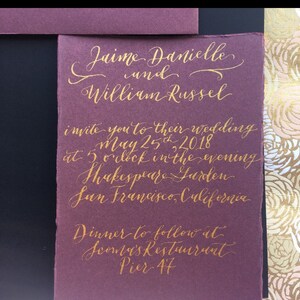 Jaime Danielle
and
William Russel
invite you to their wedding
may 25th, 2018
at 5 o'clock in the evening
Shakespeare Garden
San Francisco, California
Dinner to follow at
Scoma's Restaurant
Pier 47